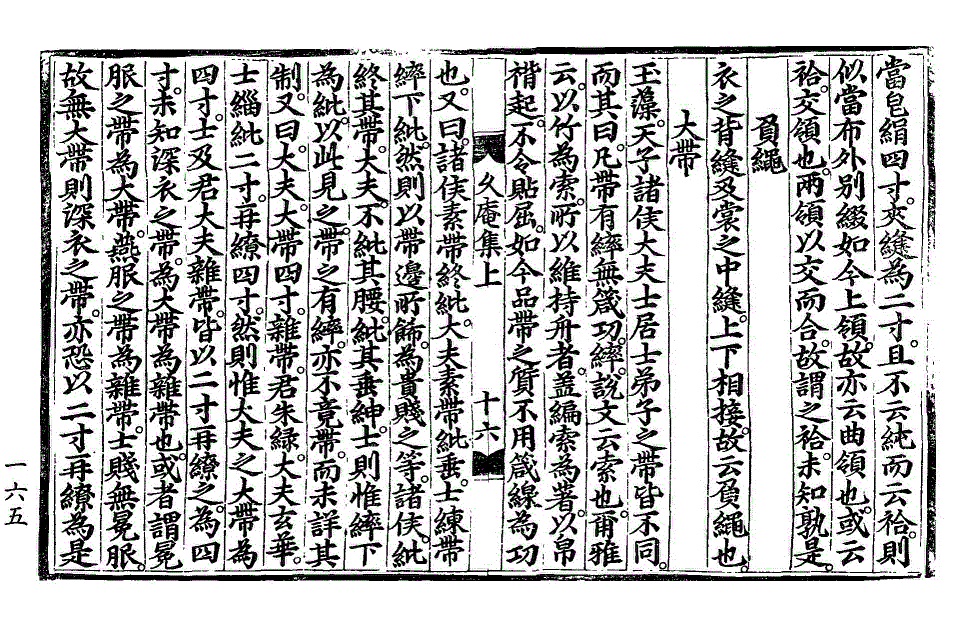 當皂絹四寸。夾縫為二寸。且不云純而云袷。則
似當布外别綴如今上領。故亦云曲領也。或云
袷。交領也。兩領以交而合。故謂之袷。未知孰是。
負繩
衣之背縫及裳之中縫。上下相接。故云負繩也。
大帶
玉藻。天子諸侯大夫士居士弟子之帶皆不同。
而其曰。凡帶有繂無箴功。繂。說文云索也。甫雅
云。以竹為索。所以維持舟者。盖編索為著。以帛
褙起。不令貼屈。如今品帶之質。不用箴線為功
久庵集上
十六
也。又曰。諸侯素帶終紕。大夫素帶紕垂。士練帶
繂下紕。然則以帶邊所餙。為貴賤之等。諸侯紕
終其帶。大夫不紕其腰。紕其垂紳。士則惟繂下
為紕。以此見之。帶之有繂。亦不竟帶。而未詳其
制。又曰。大夫大帶四寸。雜帶。君朱緑。大夫玄華。
士緇紕二寸。再繚四寸。然則惟大夫之大帶為
四寸。士及君大夫雜帶。皆以二寸再繚之。為四
寸。未知深衣之帶。為大帶為雜帶也。或者謂冕
服之帶為大帶。燕服之帶為雜帶。士賤無冕服。
故無大帶。則深衣之帶。亦恐以二寸再繚為是
一六五